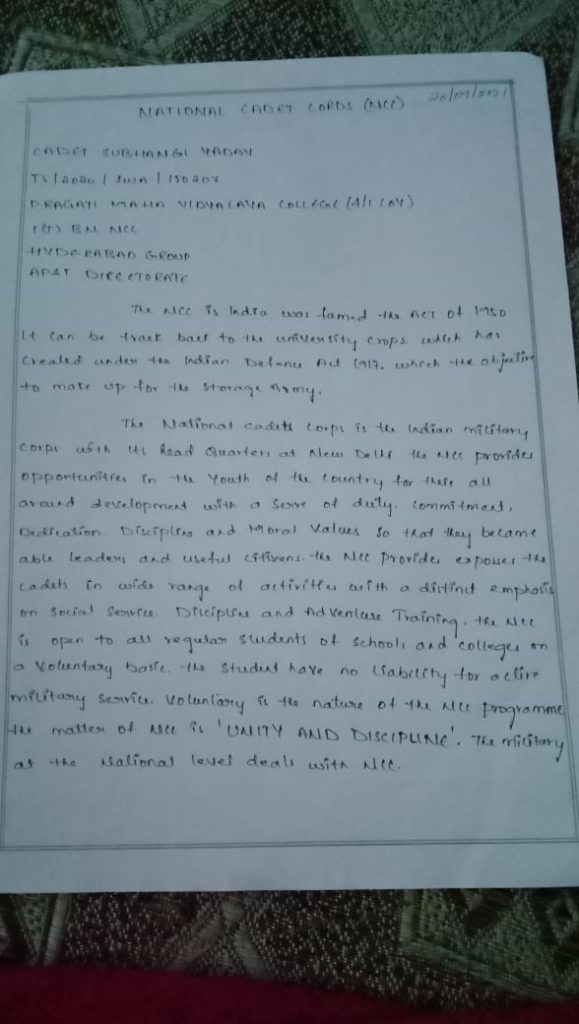 20/09/2021
NATIONAL CADET CORDS (NCC)
CADET SUBHANGI YADAV
TS/2020/SWA/150207
PRAGATI MAHA VIDYALAYA COLLEGE
BN NCC
HYDERABAD GROUP
DIRECTORATE
The NCC is India was famed the ACT of 1950
It can be back to the university crops which has
created under the Indian Defence Act 1917. which the objective
to mate up for the Storage Army.
The National cadets Corps is the Indian military
corps with its Head Quarters at New Delhi. the NCC provides
opportunities in the Youth of the Country for their all
around development with a Serve of duty. Commitment,
Dedication. Discipline and Moral Values so that they became
able leaders and useful citizens. the NCC provides exposes the
cadets in wide range of activities with a distinct emphosis
on social service. Discipline and Adventure Training. the NCC
is open to all regular students of schools and colleges on
a Voluntary basic. the Student have no Liability for active
military Service. Voluntary is the nature of the NCC programme
the matter of NCC is 'UNITY AND DISCIPLINE'. The military
at the National level deals with NCC.